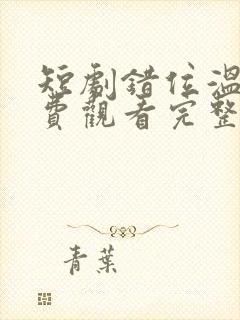 短劇錯位溫
費觀看完整
青葉